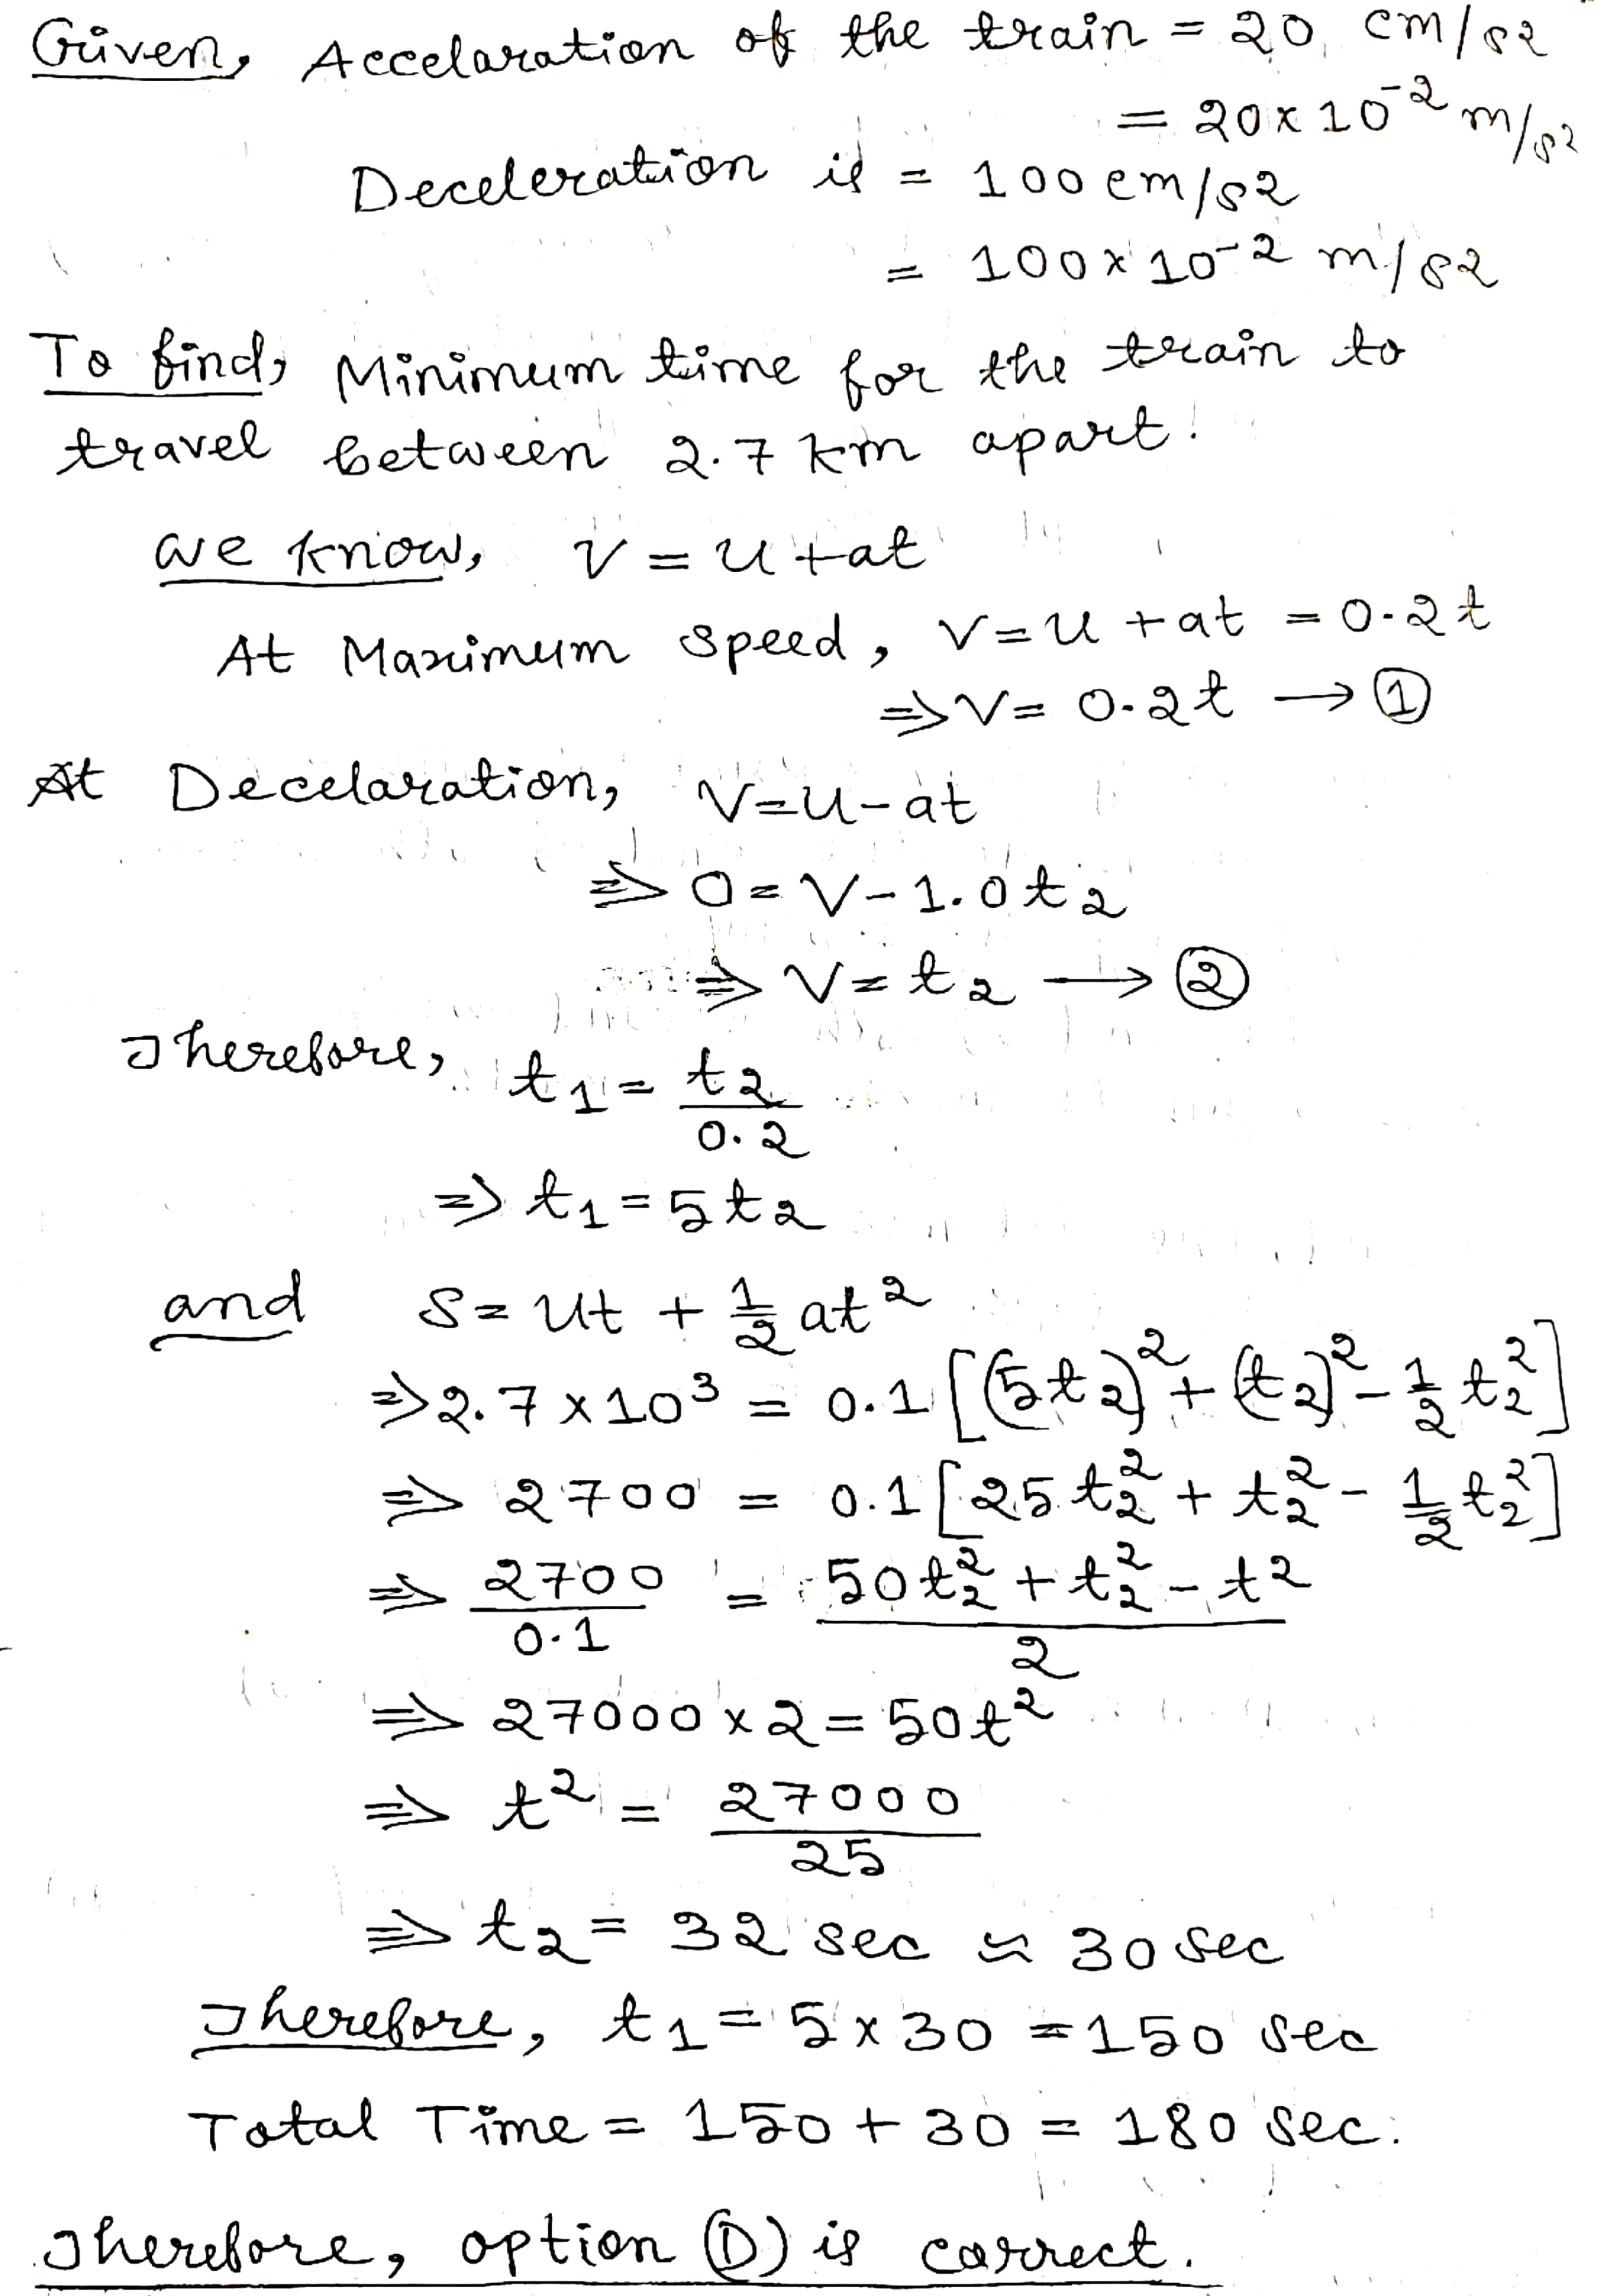 Given, Accelaration of the train = 20 cm/s2
= 20x10⁻² m/s²
Deceleration is = 100 cm/s2
= 100x10⁻² m/s2
To find, Minimum time for the train to
travel between 2.7 km apart.
we know, V = u + at
At Maximum speed, V = u + at = 0.2t
=> V = 0.2t → ①
At Decelaration, V = u - at
=> 0 = V - 1.0t₂
=> V = t₂ → ②
Therefore, t₁ = t₂/0.2
=> t₁ = 5t₂
and S = ut + 1/2 at²
=> 2.7 x 10³ = 0.1 [(5t₂)² + (t₂)² - 1/2 t₂²]
=> 2700 = 0.1 [25t₂² + t₂² - 1/2 t₂²]
=> 2700/0.1 = 50t₂² + t₂² - t²/2
=> 27000 x 2 = 50t²
=> t² = 27000/25
=> t₂ = 32 sec ≈ 30 sec
Therefore, t₁ = 5 x 30 = 150 sec
Total Time = 150 + 30 = 180 sec.
Therefore, option (D) is correct.